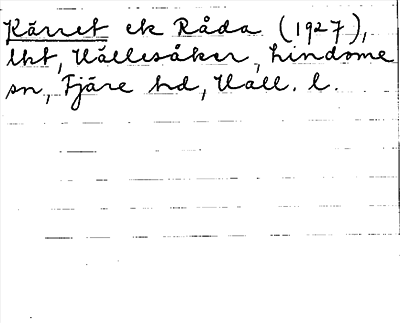 Kärret ek Råda (1927),
lht, Hällesåker, Lindome
sn, Fjäre hd, Hall. l.